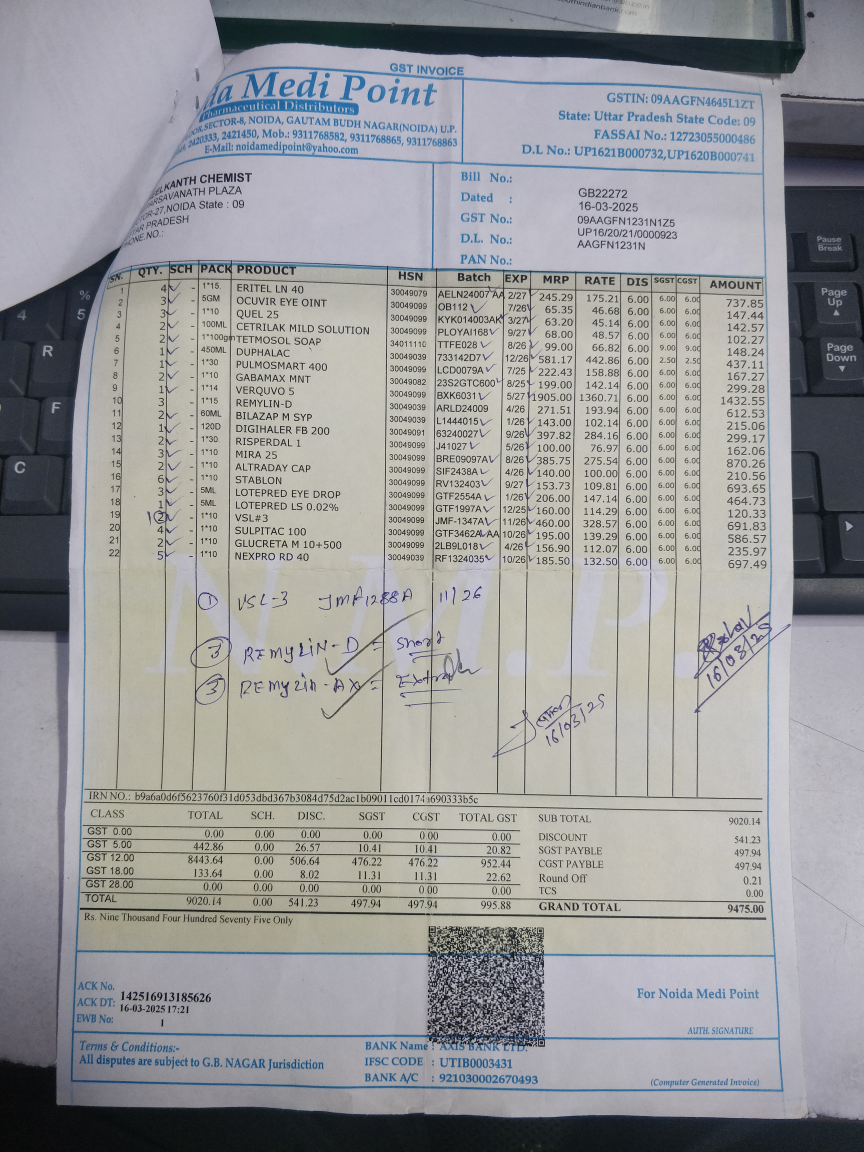 GST INVOICE
da Medi Point
Pharmaceutical Distributors
OR,SECTOR-8, NOIDA, GAUTAM BUDH NAGAR(NOIDA) U.P.
2420333, 2421450, Mob.: 9311768582, 9311768865, 9311768863
E-Mail: noidamedipoint@yahoo.com
GSTIN: 09AAGFN4645L1ZT
State: Uttar Pradesh State Code: 09
FASSAI No.: 12723055000486
D.L No.: UP1621B000732,UP1620B000741
ELKANTH CHEMIST
ARSAVANATH PLAZA
TOR-27,NOIDA State : 09
AR PRADESH
ONE.NO.:
Bill No.: GB22272
Dated : 16-03-2025
GST No.: 09AAGFN1231N1Z5
D.L. No.: UP16/20/21/0000923
PAN No.: AAGFN1231N
SN. QTY. SCH PACK PRODUCT HSN Batch EXP MRP RATE DIS SGST CGST AMOUNT
1 4 - 1*15 ERITEL LN 40 30049079 AELN24007AA 2/27 245.29 175.21 6.00 6.00 6.00 737.85
2 3 - 5GM OCUVIR EYE OINT 30049099 OB112 7/26 65.35 46.68 6.00 6.00 6.00 147.44
3 3 - 1*10 QUEL 25 30049099 KYK014003AK 3/27 63.20 45.14 6.00 6.00 6.00 142.57
4 2 - 100ML CETRILAK MILD SOLUTION 30049099 PLOYAI168 9/27 68.00 48.57 6.00 6.00 6.00 102.27
5 2 - 1*100gm TETMOSOL SOAP 34011110 TTFE028 8/26 99.00 66.82 6.00 9.00 9.00 148.24
6 1 - 450ML DUPHALAC 30049039 733142D7 12/26 581.17 442.86 6.00 2.50 2.50 437.11
7 1 - 1*30 PULMOSMART 400 30049099 LCD0079A 7/25 222.43 158.88 6.00 6.00 6.00 167.27
8 2 - 1*10 GABAMAX MNT 30049082 23S2GTC600 8/25 199.00 142.14 6.00 6.00 6.00 299.28
9 1 - 1*14 VERQUVO 5 30049099 BXK6031 5/27 1905.00 1360.71 6.00 6.00 6.00 1432.55
10 3 - 1*15 REMYLIN-D 30049039 ARLD24009 4/26 271.51 193.94 6.00 6.00 6.00 612.53
11 2 - 60ML BILAZAP M SYP 30049039 L1444015 1/26 143.00 102.14 6.00 6.00 6.00 215.06
12 1 - 120D DIGIHALER FB 200 30049091 63240027 9/26 397.82 284.16 6.00 6.00 6.00 299.17
13 2 - 1*30 RISPERDAL 1 30049099 J41027 5/26 100.00 76.97 6.00 6.00 6.00 162.06
14 3 - 1*10 MIRA 25 30049099 BRE09097A 8/26 385.75 275.54 6.00 6.00 6.00 870.26
15 2 - 1*10 ALTRADAY CAP 30049099 SIF2438A 4/26 140.00 100.00 6.00 6.00 6.00 210.56
16 6 - 1*10 STABLON 30049099 RV132403 9/27 153.73 109.81 6.00 6.00 6.00 693.65
17 3 - 5ML LOTEPRED EYE DROP 30049099 GTF2554A 1/26 206.00 147.14 6.00 6.00 6.00 464.73
18 1 - 5ML LOTEPRED LS 0.02% 30049099 GTF1997A 12/25 160.00 114.29 6.00 6.00 6.00 120.33
19 1 2 - 1*10 VSL#3 30049099 JMF-1347A 11/26 460.00 328.57 6.00 6.00 6.00 691.83
20 4 - 1*10 SULPITAC 100 30049099 GTF3462AAA 10/26 195.00 139.29 6.00 6.00 6.00 586.57
21 2 - 1*10 GLUCRETA M 10+500 30049099 2LB9L018 4/26 156.90 112.07 6.00 6.00 6.00 235.97
22 5 - 1*10 NEXPRO RD 40 30049039 RF1324035 10/26 185.50 132.50 6.00 6.00 6.00 697.49
N.M.P.
① VSL-3 JMF1288A 11/26
③ REMYLIN-D = Short
③ REMYLIN-AX = Extra
16/03/25
16/03/25
IRN NO.: b9a6a0d6f5623760f31d053dbd367b3084d75d2ac1b09011cd0174a690333b5c
CLASS TOTAL SCH. DISC. SGST CGST TOTAL GST
GST 0.00 0.00 0.00 0.00 0.00 0.00 0.00
GST 5.00 442.86 0.00 26.57 10.41 10.41 20.82
GST 12.00 8443.64 0.00 506.64 476.22 476.22 952.44
GST 18.00 133.64 0.00 8.02 11.31 11.31 22.62
GST 28.00 0.00 0.00 0.00 0.00 0.00 0.00
TOTAL 9020.14 0.00 541.23 497.94 497.94 995.88
SUB TOTAL 9020.14
DISCOUNT 541.23
SGST PAYBLE 497.94
CGST PAYBLE 497.94
Round Off 0.21
TCS 0.00
GRAND TOTAL 9475.00
Rs. Nine Thousand Four Hundred Seventy Five Only
ACK No. 142516913185626
ACK DT: 16-03-2025 17:21
EWB No: 1
For Noida Medi Point
AUTH. SIGNATURE
Terms & Conditions:-
All disputes are subject to G.B. NAGAR Jurisdiction
BANK Name : AXIS BANK LTD.
IFSC CODE : UTIB0003431
BANK A/C : 921030002670493
(Computer Generated Invoice)
$ 4
% 5
R
F
C
Pause
Break
Page
Up
Page
Down